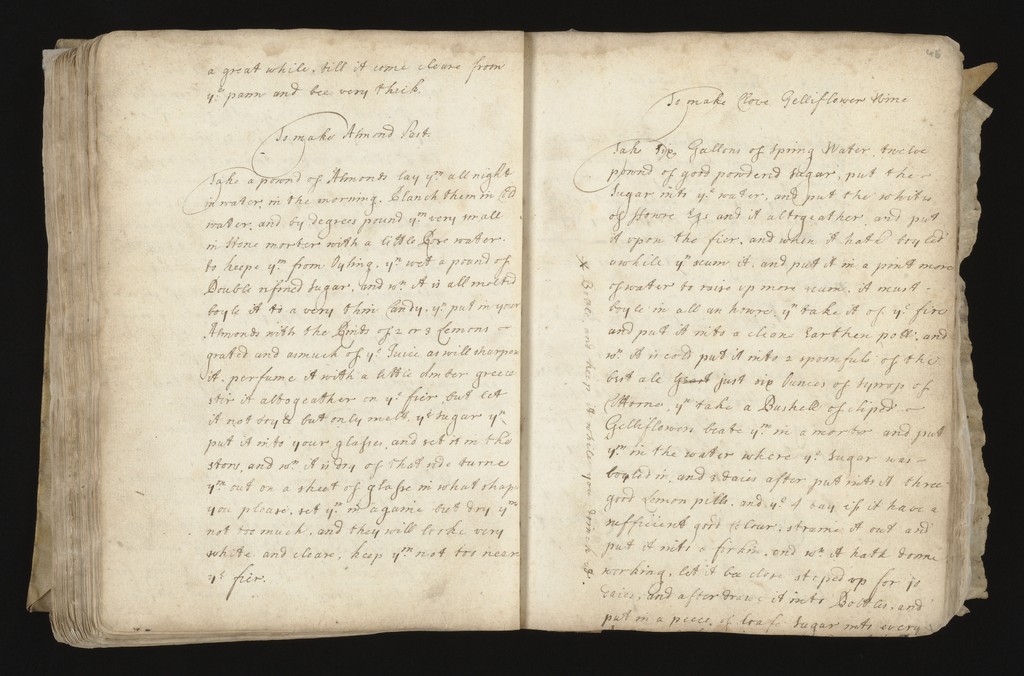 a great while, till it come cleare from
yᵉ pann and bee very thick.
To make Almond Past.
Take a pound of Almonds lay yᵐ all night
in water, in the morning, Blanch them in Cold
water, and by degrees pound yᵐ very small
in Stone morter with a little Rose water
to keepe yᵐ from Oyling, yⁿ wet a pound of
Double rifined sugar, and wⁿ it is all melted
boyle it to a very thin Candy, yⁿ put in your
Almonds with the Rinds of 2 or 3 Lemons
grated and asmuch of yᵉ Juice as will sharpen
it, perfume it with a little Amber greece
stir it altogeather on yᵉ fier, but let
it not boyle but only melt yᵉ sugar yⁿ
put it into your glasses, and set it in the
stove, and wⁿ it is dry of that side turne
yᵐ out on a sheet of glasse in what shap
you please, set yᵐ in againe but dry yᵐ
not too much, and they will looke very
white and cleare, keep yᵐ not too neer
yᵉ fier.
46
To make Clove Gelliflower Wine
Take six Gallons of Spring Water, twelve
pound of good powdered sugar, put the
Sugar into yᵉ water, and put the whites
of fowre Egs and it altogeather, and put
it upon the fier, and when it hath boyled
awhile yⁿ scum it, and put it in a pint more
of water to raise up more scum, it must
boyle in all an howre, yⁿ take it of yᵉ fire
and put it into a clean Earthen pott, and
wⁿ it is cold put it into 2 spoonfuls of the
best ale just six Ounces of Syrrop of
Cittorne, yⁿ take a Bushell of cliped
Gelliflowers, beate yᵐ in a morter and put
yᵐ in the water where yᵉ Sugar was
boyled in, and 3 daies after put into it three
good Lemon pills, and yᵉ 4 day if it have a
sufficient good Colour, straine it out and
put it into a firkin, and wⁿ it hath donne
working, let it bee close stoped up for 10
daies, and after drawe it into Bottles, and
put in a peece of loaf Sugar into every
* Bottle, and keep it while you